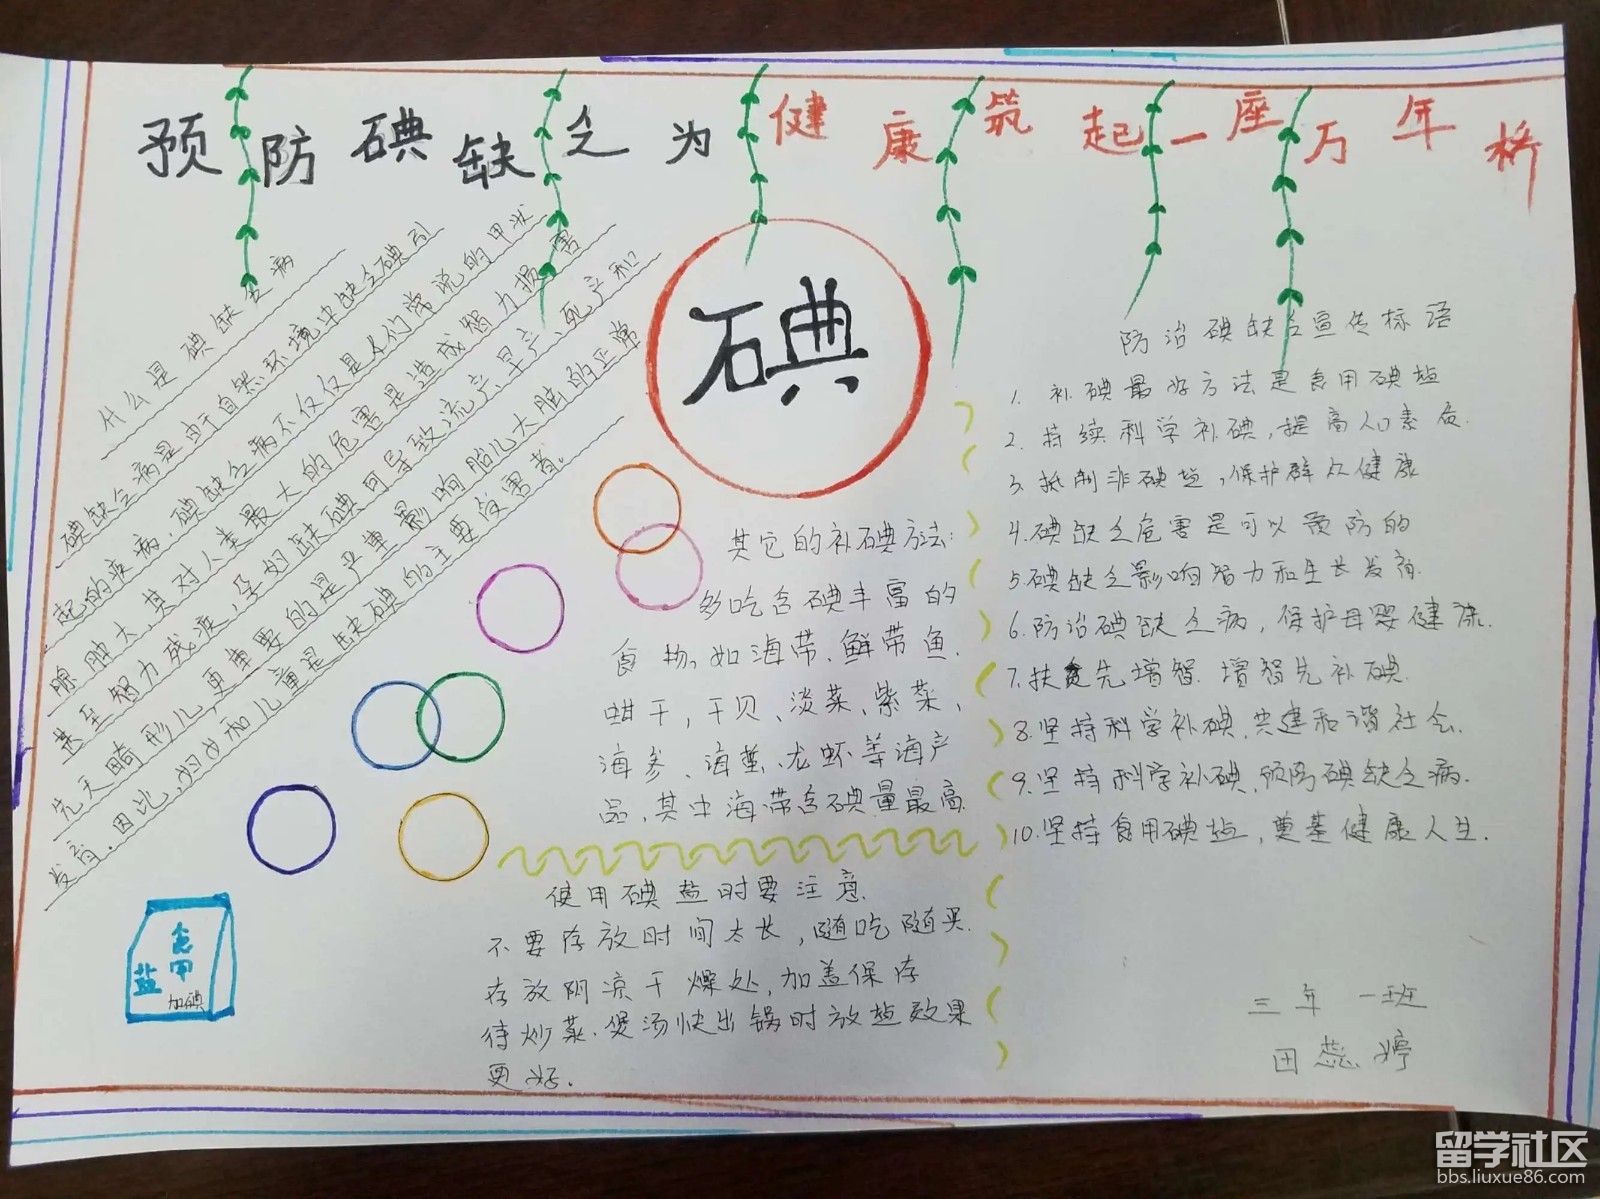 预防碘缺乏为健康筑起一座万年桥
什么是碘缺乏病
碘缺乏病是由于自然环境中缺乏碘引
起的疾病，碘缺乏病不仅仅是人们常说的甲状
腺肿大，其对人类最大的危害是造成智力损害
甚至智力残疾，孕妇缺碘可导致流产、早产、死产和
先天畸形儿，更重要的是严重影响胎儿大脑的正常
发育。因此，妇女和儿童是缺碘的主要受害者。
碘
其它的补碘方法：
多吃含碘丰富的
食物，如海带、鲜带鱼、
蚶干，干贝、淡菜、紫菜、
海参、海蜇、龙虾等海产
品，其中海带含碘量最高
使用碘盐时要注意
不要存放时间太长，随吃随买.
存放阴凉干燥处，加盖保存
待炒菜.煲汤快出锅时放盐效果
更好.
防治碘缺乏宣传标语
1. 补碘最好方法是食用碘盐
2. 持续科学补碘，提高人口素质.
3. 抵制非碘盐，保护群众健康
4.碘缺乏危害是可以预防的
5.碘缺乏影响智力和生长发育.
6.防治碘缺乏病，保护母婴健康.
7.扶贫先增智.增智先补碘.
8.坚持科学补碘.共建和谐社会.
9.坚持科学补碘.预防碘缺乏病.
10.坚持食用碘盐，奠基健康人生.
食用
盐
加碘
三年一班
田蕊婷
留学社区
bbs.liuxue86.com